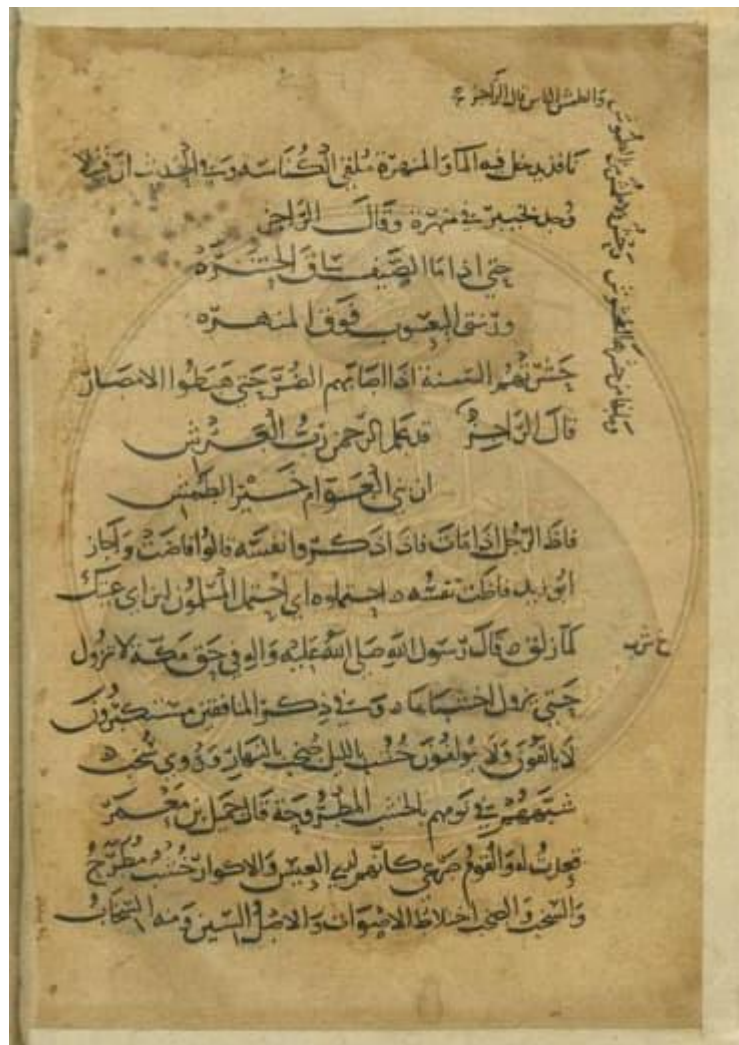 والطمش الناس قال الراجز
نافذ يدخل فيه الماء والمنهرة ملقى الكناسة وفي الحديث ان قتيلا
وجد بخيبر في منهرة وقال الراجز
حتى اذا ما الصيف ساق الحشره
ورنق اليعسوب فوق المنهره
حشرتهم السنة اذا اصابهم الضر حتى هبطوا الامصار
قال الراجز قد علم الرحمن رب العرش
ان بني العوام خير الطمش
فاظ الرجل اذا مات فاذا ذكروا نفسه قالوا فاضت واجاز
ابو زيد فاظت نفسه احتملوه اي احتمل المسلمون ابن ابي عتيك
لما زلق قال رسول الله صلى الله عليه واله في حق مكة لا تزول
حتى يزول اخشباها وفي ذكر المنافقين مستكبرون
لا يالفون ولا يولفون خشب بالليل صخب بالنهار وروي سخب
شبههم في نومهم بالخشب المطروحة قال جميل بن معمر
قعدت له والقوم صرعى كانهم لدى العيس والاكوار خشب مطرح
والسخب والصخب اختلاط الاصوات والاصل السين ومنه السخاب
وحش ولا طمش من الطموش